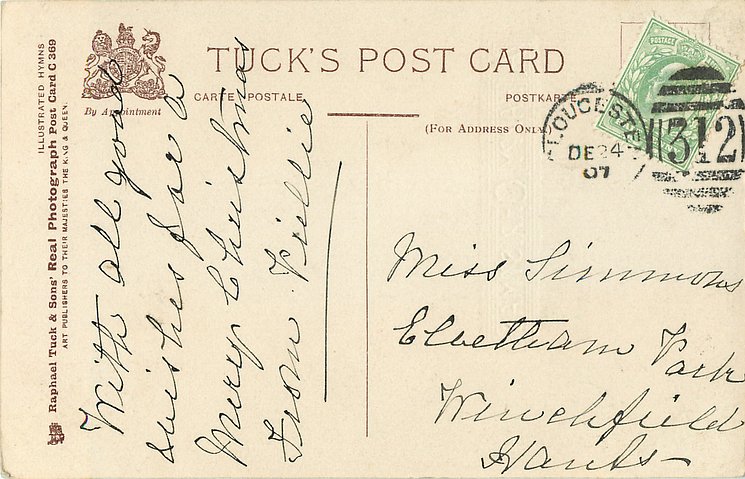 TUCK'S POST CARD
CARTE POSTALE
POSTKARTE
By Appointment
(FOR ADDRESS ONLY)
ILLUSTRATED HYMNS
Raphael Tuck & Sons' Real Photograph Post Card C 369
ART PUBLISHERS TO THEIR MAJESTIES THE KING & QUEEN.
With all good
wishes for a
Merry Christmas
From
POSTAGE
GLOUCESTER
DE 24
07
312
Miss Simmons
Elvetham Park
Winchfield
Hants